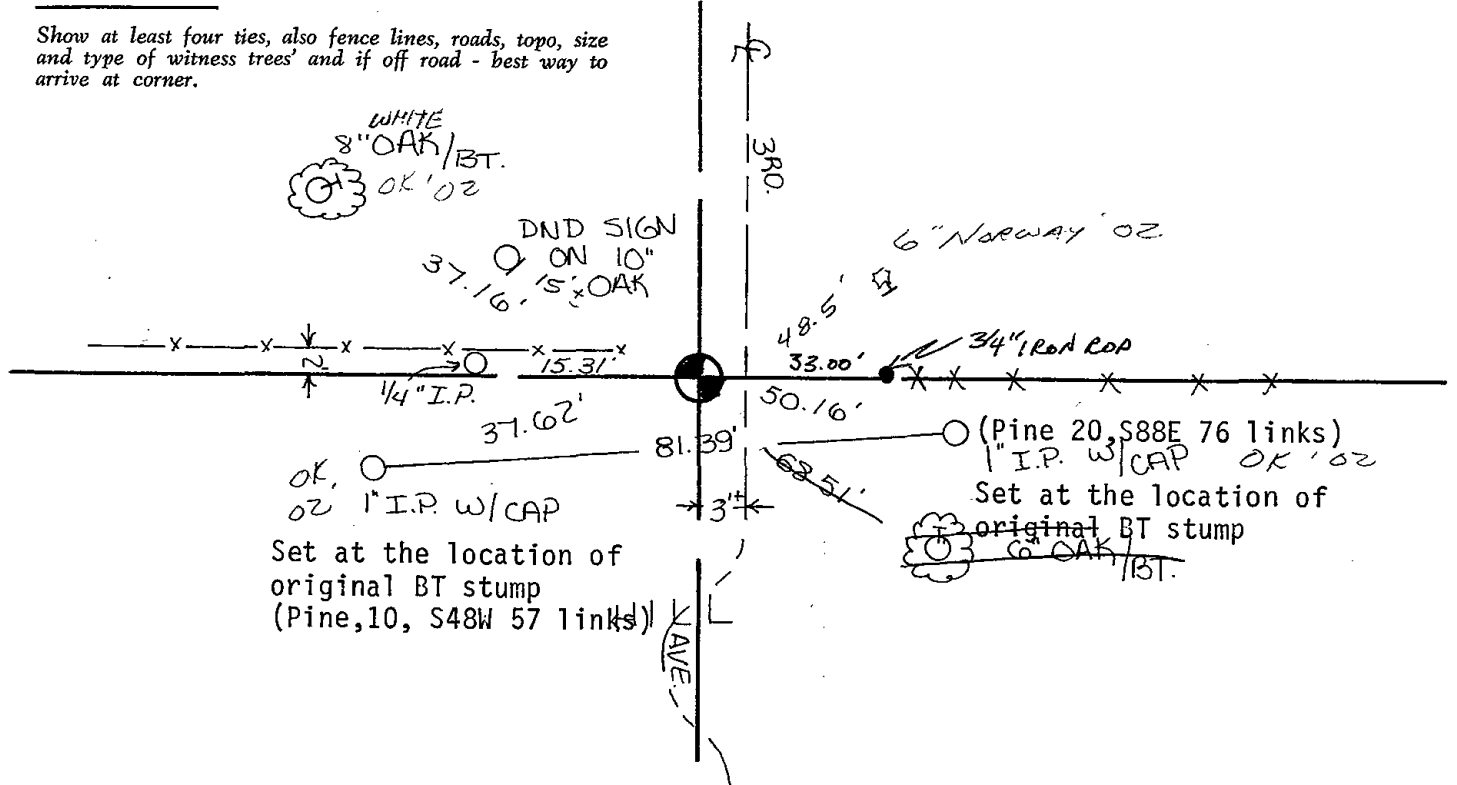 Show at least four ties, also fence lines, roads, topo, size
and type of witness trees' and if off road - best way to
arrive at corner.
WHITE
8" OAK/BT.
OK '02
℄
3RD.
DND SIGN
ON 10"
OAK
15'±
37.16'
6" NORWAY '02
48.5'
3/4" IRON ROD
33.00'
2'
15.31'
1/4" I.P.
50.16'
37.62'
81.39'
(Pine 20,S88E 76 links)
1" I.P. W/CAP OK '02
Set at the location of
original BT stump
OK,
02 1" I.P. W/CAP
68.51'
3'±
6" OAK/BT.
Set at the location of
original BT stump
(Pine,10, S48W 57 links)
AVE.